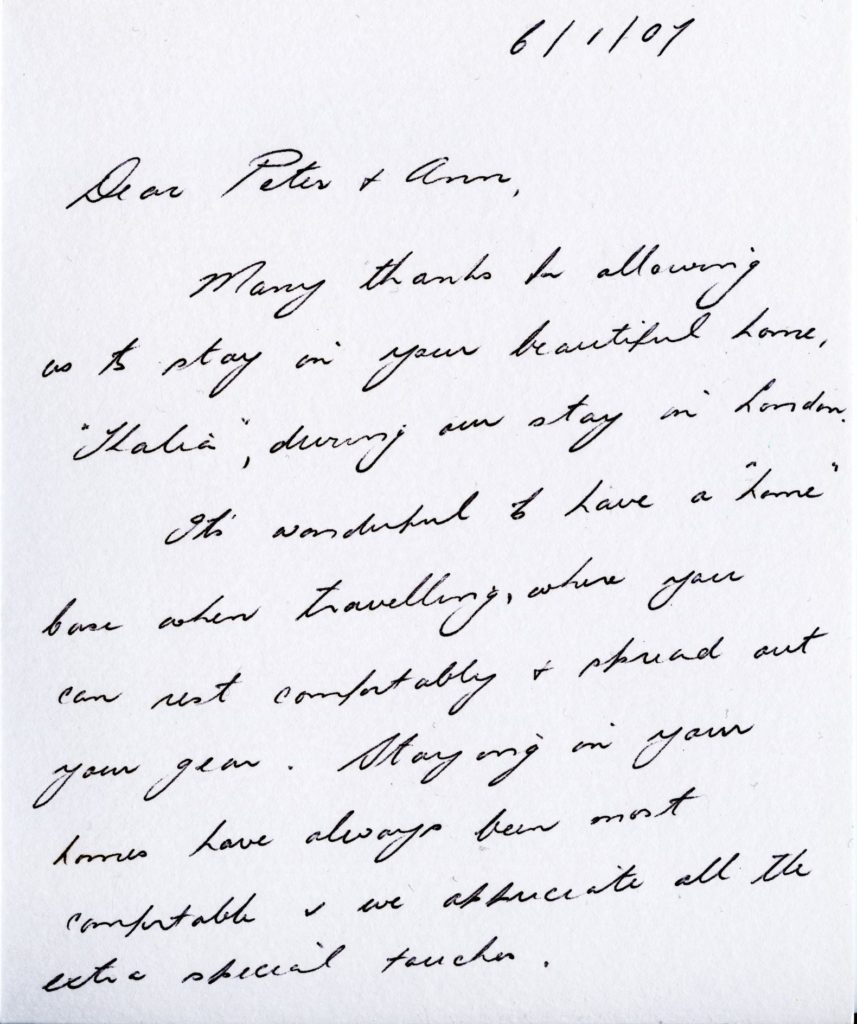 6/1/07
Dear Peter & Ann,
Many thanks for allowing
us to stay in your beautiful home,
"Thalia", during our stay in London.
It's wonderful to have a "home"
base when travelling, where you
can rest comfortably & spread out
your gear. Staying in your
homes have always been most
comfortable & we appreciate all the
extra special touches.